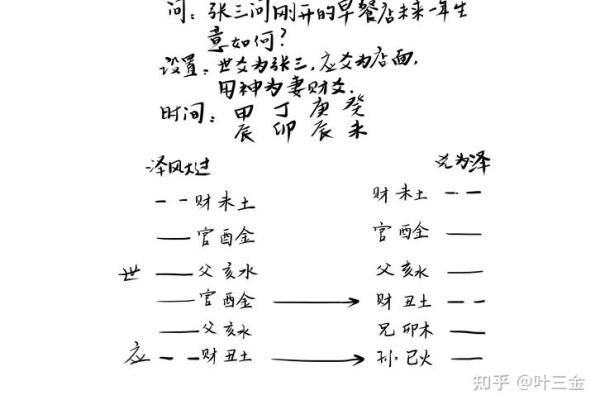 问：张三问刚开的早餐店未来一年生
意如何？
设置：世爻为张三，应爻为店面，
用神为妻财爻．
时间：甲 丁 庚 癸
辰 卯 辰 未
泽风大过 兑为泽
财未土 财未土
官酉金 官酉金
世 父亥水 父亥水
官酉金 财丑土
父亥水 兄卯木
应 财丑土 孙巳火
知乎 @叶三金